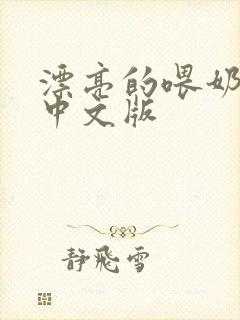 漂亮的喂奶
中文版
静飛雪